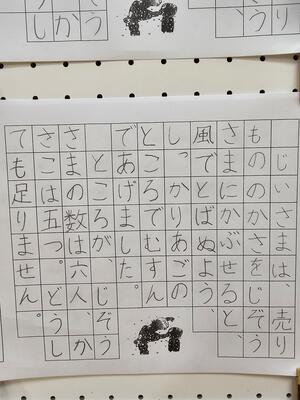 り
う
う
か
し
じいさまは、売り
もののかさをじぞう
さまにかぶせると、
風でとばぬよう、
しっかりあごの
ところでむすん
であげました。
ところが、じぞう
さまの数は六人、か
さこは五つ。どうし
ても足りません。